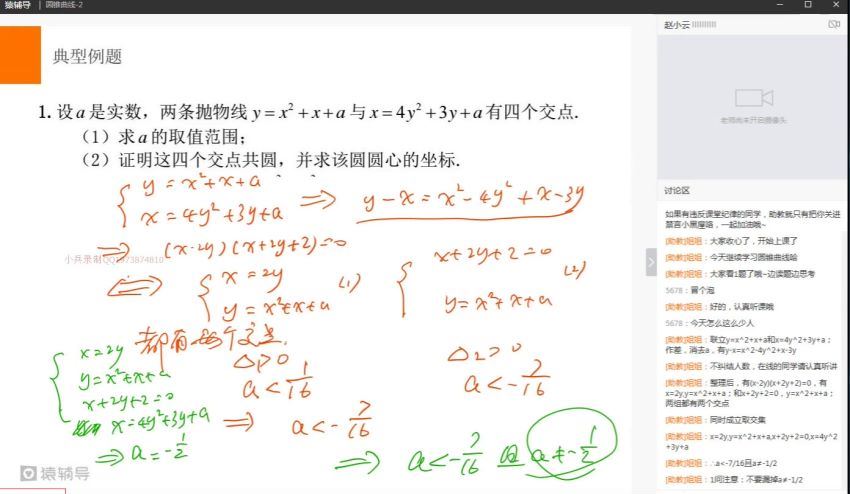 猿辅导 | 圆锥曲线-2
典型例题
1. 设a是实数，两条抛物线 y=x²+x+a 与 x=4y²+3y+a 有四个交点.
（1）求a的取值范围；
（2）证明这四个交点共圆，并求该圆圆心的坐标.
{ y=x²+x+a
x=4y²+3y+a
⇒ y-x=x²-4y²+x-3y
⇒ (x-2y)(x+2y+2)=0
小兵录制QQ1073874810
⇔ { x=2y
y=x²+x+a (1)
{ x+2y+2=0
y=x²+x+a (2)
都有两个交点
△₁>0
a<1/16
△₂>0
a<-7/16
⇒ a<-7/16
{ x=2y
y=x²+x+a
x+2y+2=0
x=4y²+3y+a
⇒ a=-1/2
⇒ a<-7/16 且 a≠-1/2
猿辅导
赵小云
老师尚未开启摄像头
讨论区
如果有违反课堂纪律的同学，助教就只有把你关进禁言小黑屋咯，一起加油哦~
[助教]姐姐：大家收心了，开始上课了
[助教]姐姐：今天继续学习圆锥曲线哈
[助教]姐姐：大家看1题了哦~边读题边思考
5678：冒个泡
[助教]姐姐：好的，认真听课哦
5678：今天怎么这么少人
[助教]姐姐：联立y=x^2+x+a和x=4y^2+3y+a；作差，消去a，有y-x=x^2-4y^2+x-3y
[助教]姐姐：不纠结人数，在线的同学请认真听讲
[助教]姐姐：整理后，有(x-2y)(x+2y+2)=0，有x=2y,y=x^2+x+a；和x+2y+2=0，y=x^2+x+a；两组都有两个交点
[助教]姐姐：同时成立取交集
[助教]姐姐：x=2y,y=x^2+x+a,x+2y+2=0,x=4y^2+3y+a
[助教]姐姐：∴a<-7/16且a≠-1/2
[助教]姐姐：1问注意：不要漏掉a≠-1/2